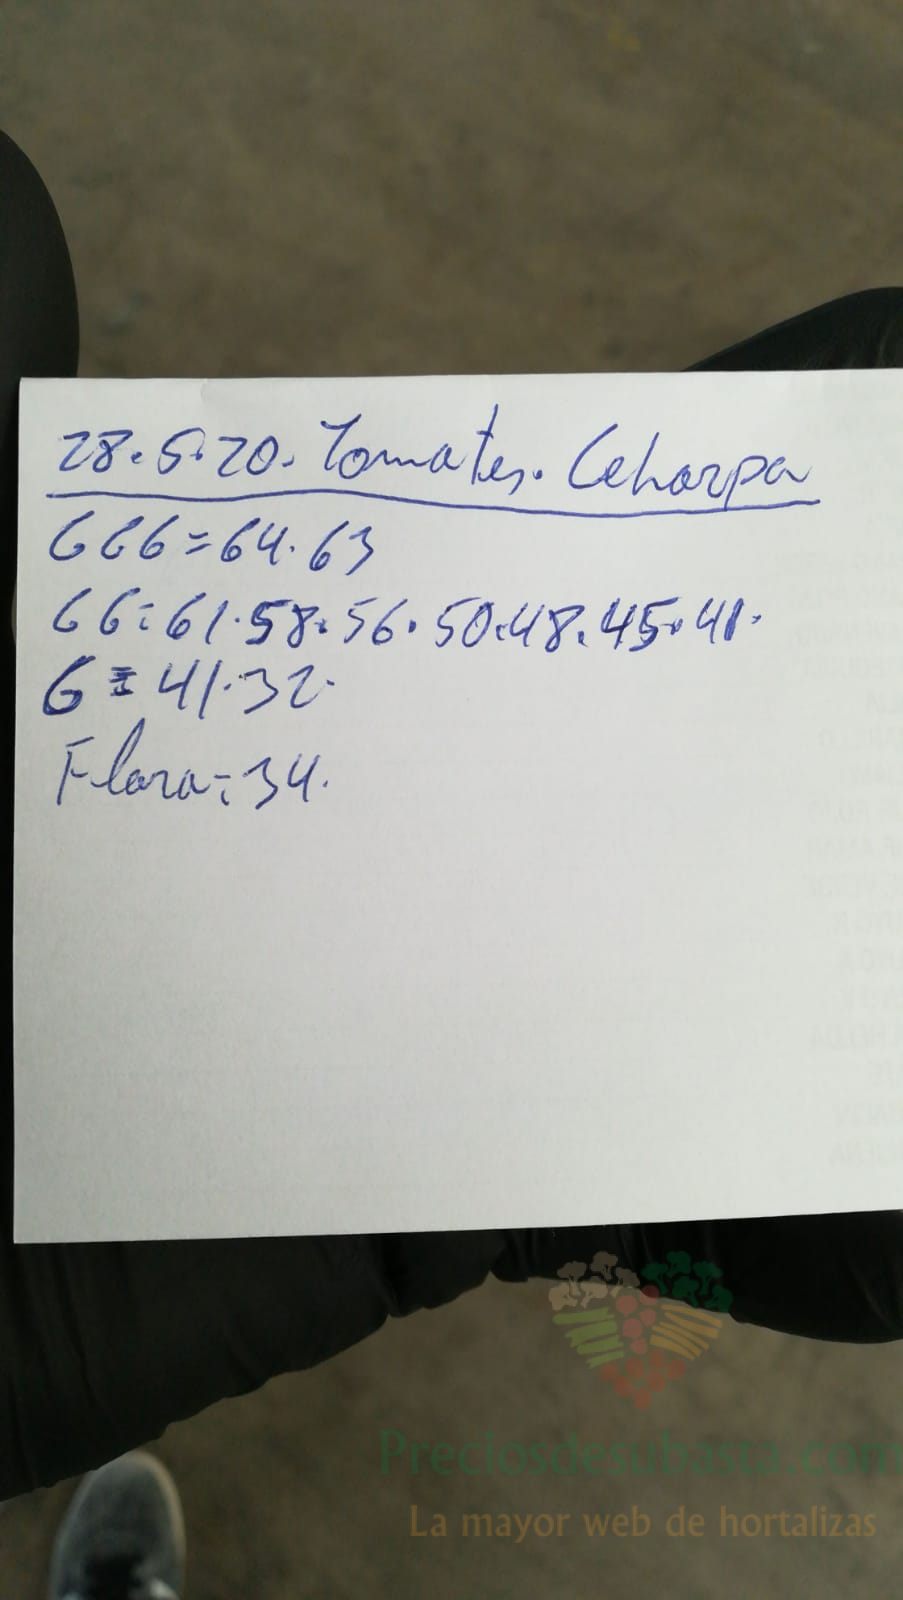 28.5.20. Tomates. Cehorpa
GGG = 64.63
GG = 61.58.56.50.48.45.41.
G = 41.32.
Flora = 34.
Preciosdesubasta.com
La mayor web de hortalizas